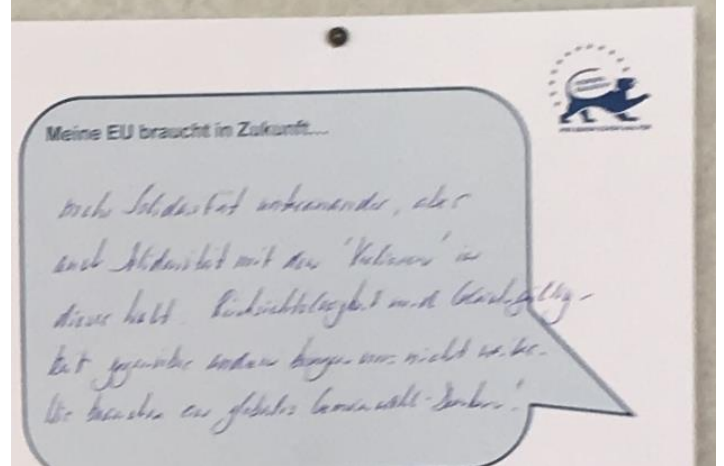 Meine EU braucht in Zukunft...
mehr Solidarität untereinander, aber
auch Solidarität mit den "Verlierern" in
dieser Welt. Rücksichtslosigkeit und Gleichgültig-
keit gegenüber anderen bringen uns nicht weiter.
Wir brauchen ein globales Gemeinwohl-Denken!